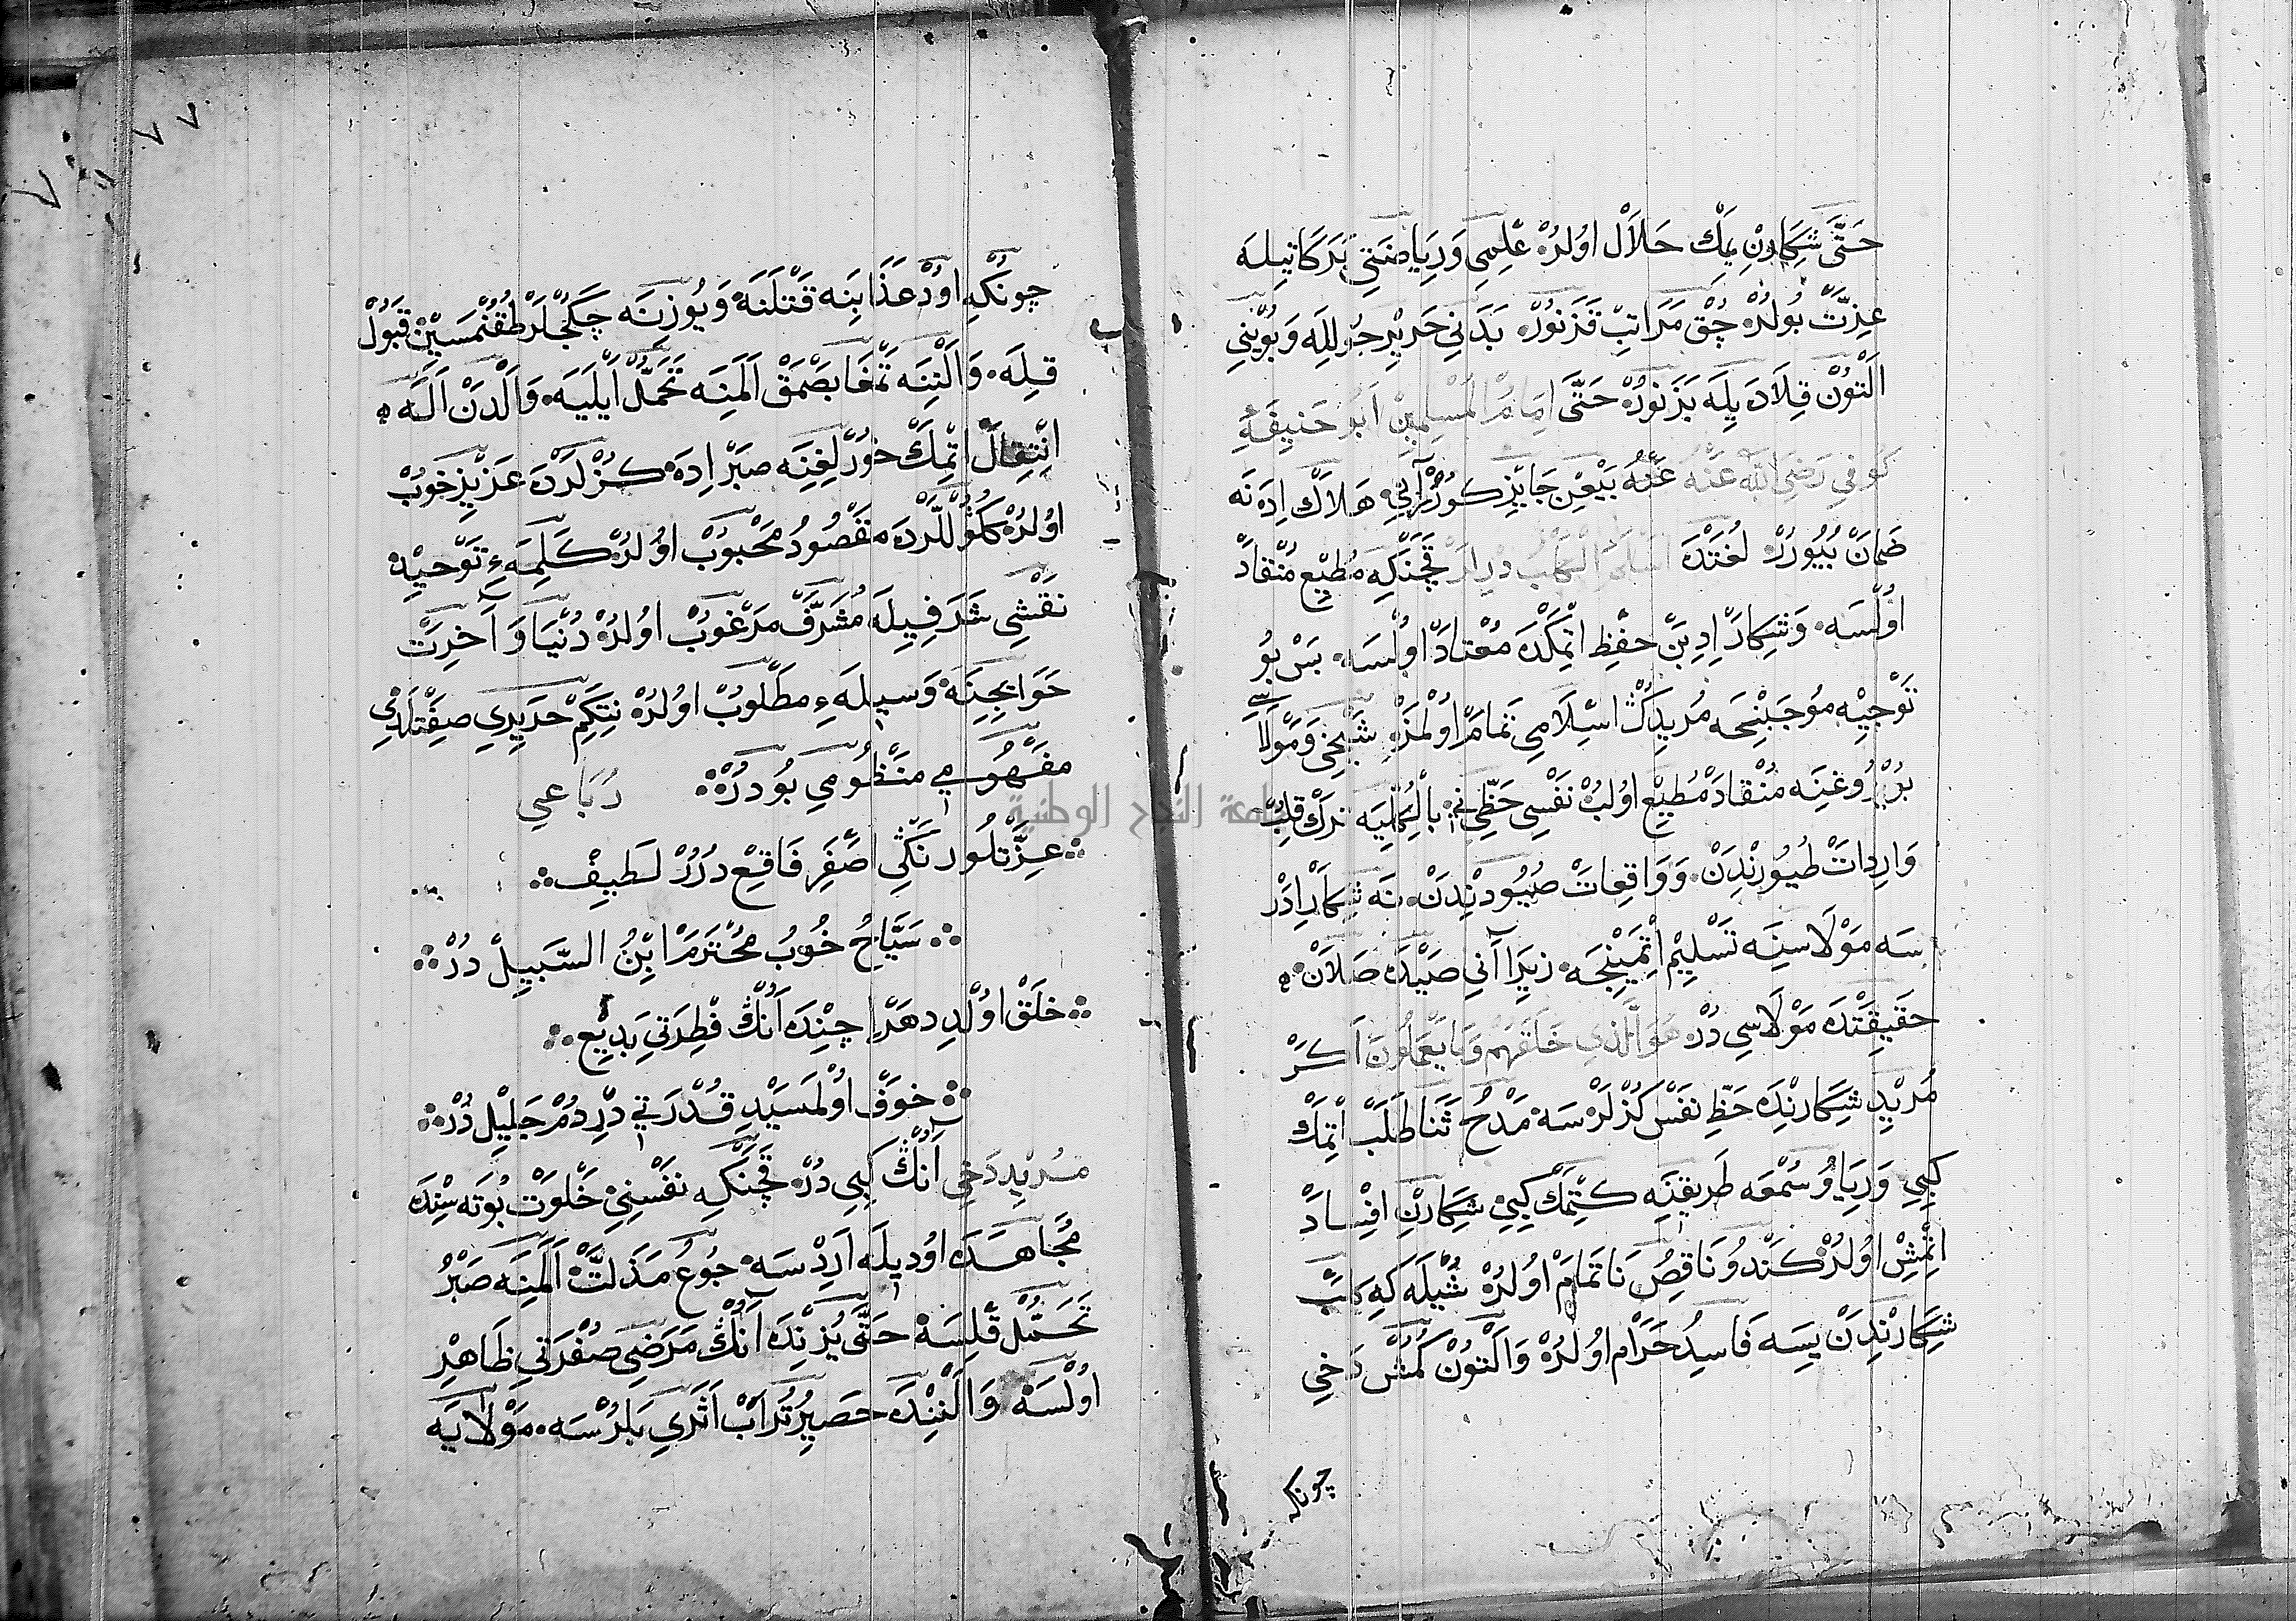 حَتَّى شِكَارِنْ يِمَكْ حَلَالْ اوُلُرْ عِلْمِى وَرِيَاضَتِى بَرَكَاتِيلَه
عِزَّتْ بُولُرْ چُقْ مَرَاتِبْ قَزَنُورْ بَدَنِى حَرِيرِ جُو لِلَه وَبُوينِى
اَلْتُونْ قِلَادَه يِلَه بَزَنُورْ حَتَّى اِمَامُ الْمُسْلِمِينْ اَبُو حَنِيفَةِ
كُوفِى رَضِىَ اللّٰهُ عَنْهُ بَيْعِنْ جَايِزْ كُورُرْ آنِى هَلَاكْ اِدَنَه
ضَمَانْ بُيُورُرْ لُغَتْدَه اَسْلَمَ الْكَلْبُ دِيرْلَرْ قَچَنْكِه مُطِيعْ مُنْقَادْ
اوُلْسَه وَشِكَارْ اِدِبَنْ حِفْظِ اتْمِكْدَه مُعْتَادْ اوُلْسَه بَسْ بُو
تَوْجِيْه مُوجَبِنْجَه مُرِيدِكْ اسْلَامِى تَمَامْ اوُلْمَزْ شَيْخِى وَمَوْلَاسِى
بُيُرُوغِنَه مُنْقَادْ مُطِيعْ اوُلُبْ نَفْسِى حَظِّنِى بِالْكُلِّيَه تَرْكْ قِلُبْ
وَارِدَاتْ طُيُورِنْدِنْ وَوَاقِعَاتْ صُيُودِنْدِنْ نَه شِكَارْ اِدَرْ
سَه مَوْلَاسِينَه تَسْلِيمْ اتْمَيِنْجَه زِيرَا آنِى صَيْدَه صَلَانْ
حَقِيقَتْدَه مَوْلَاسِى دُرْ هُوَ الَّذِى خَلَقَهُمْ وَمَا يَعْمَلُونَ اَكَرْ
مُرِيدْ شِكَارِنْدَه حَظِّ نَفْسْ كُزْلَرْسَه مَدْحُ ثَنَا طَلَبْ اتْمَكْ
كِبِى وَرِيَا وُ سُمْعَه طَرِيقِنَه كِتْمَكْ كِبِى شِكَارِنْ افْسَادْ
اتْمِشْ اوُلُرْ كَنْدُو نَاقِصْ نَا تَمَامْ اوُلُرْ شُيْلَه كِه كَلْبْ
شِكَارِنْدِنْ يِسَه فَاسِدُ حَرَامْ اوُلُرْ وَاَلْتُونْ كُمُشْ دَخِى
چونكه
چُونْكِه اوُدْ عَذَابِنَه قَتْلَنَه وَيُوزِنَه چَكُجْلَرْ طُقُنْمَسِينْ قَبُولْ
قِلَه وَاَلْنِنَه تَمْغَا بَصْمَقْ اَلَمِنَه تَحَمُّلْ اَيْلَيَه وَاَلْدَنْ اَلَه
انْتِقَالْ اتْمِكْ خُورْلِغِنَه صَبْرْ اِدَه كُزْلَرْدَه عَزِيزْ خُوبْ
اوُلُرْ كَمُو ڭُللَّرْدَه مَقْصُودُ مَحْبُوبْ اوُلُرْ كَلِمَهِٔ تَوْحِيدْ
نَقْشِى شَرَفِيلَه مُشَرَّفْ مَرْغُوبْ اوُلُرْ دُنْيَا وَآخِرَتْ
حَوَايِجِنَه وَسِيلَهِٔ مَطْلُوبْ اوُلُرْ نِتَكِمْ حَرِيرِى صِفَتْلَدِى
مَفْهُومِى مَنْظُومِى بُودُرْ رُبَاعِى
عِزَّتْلُو رَنْكِى اصْفَرِ فَاقِعْ دُرُرْ لَطِيفْ
سَيَّاحُ خُوبُ مُحْتَرَمْ ابْنُ السَّبِيلْ دُرْ
خَلْقْ اوُلْدِ دِهَرْ اِچِنْدَه اَنُكْ فِطْرَتِى بَدِيعْ
خَوْفْ اوُلْمَسَيْدِ قُدْرَتِى دِرْدُمْ جَلِيلْ دُرْ
مُرِيدْ دَخِى اَنُكْ كِبِى دُرْ قَچَنْكِه نَفْسِنِى خَلْوَتْ بُوتَه سِنْدَه
مُجَاهَدَه اوُدِيلَه اَرِدْسَه جُوعُ مَذَلَّتْ اَلَمِنَه صَبْرُ
تَحَمُّلْ قِلْسَه حَتَّى يُزِنْدَه اَنُكْ مَرَضِى صُفْرَتِى ظَاهِرْ
اوُلْسَه وَاَلْنِنْدَه حَصِيرُ تُرَابْ اَثَرِى بَلُرْسَه مَوْلَايَه
جامعة النجاح الوطنية